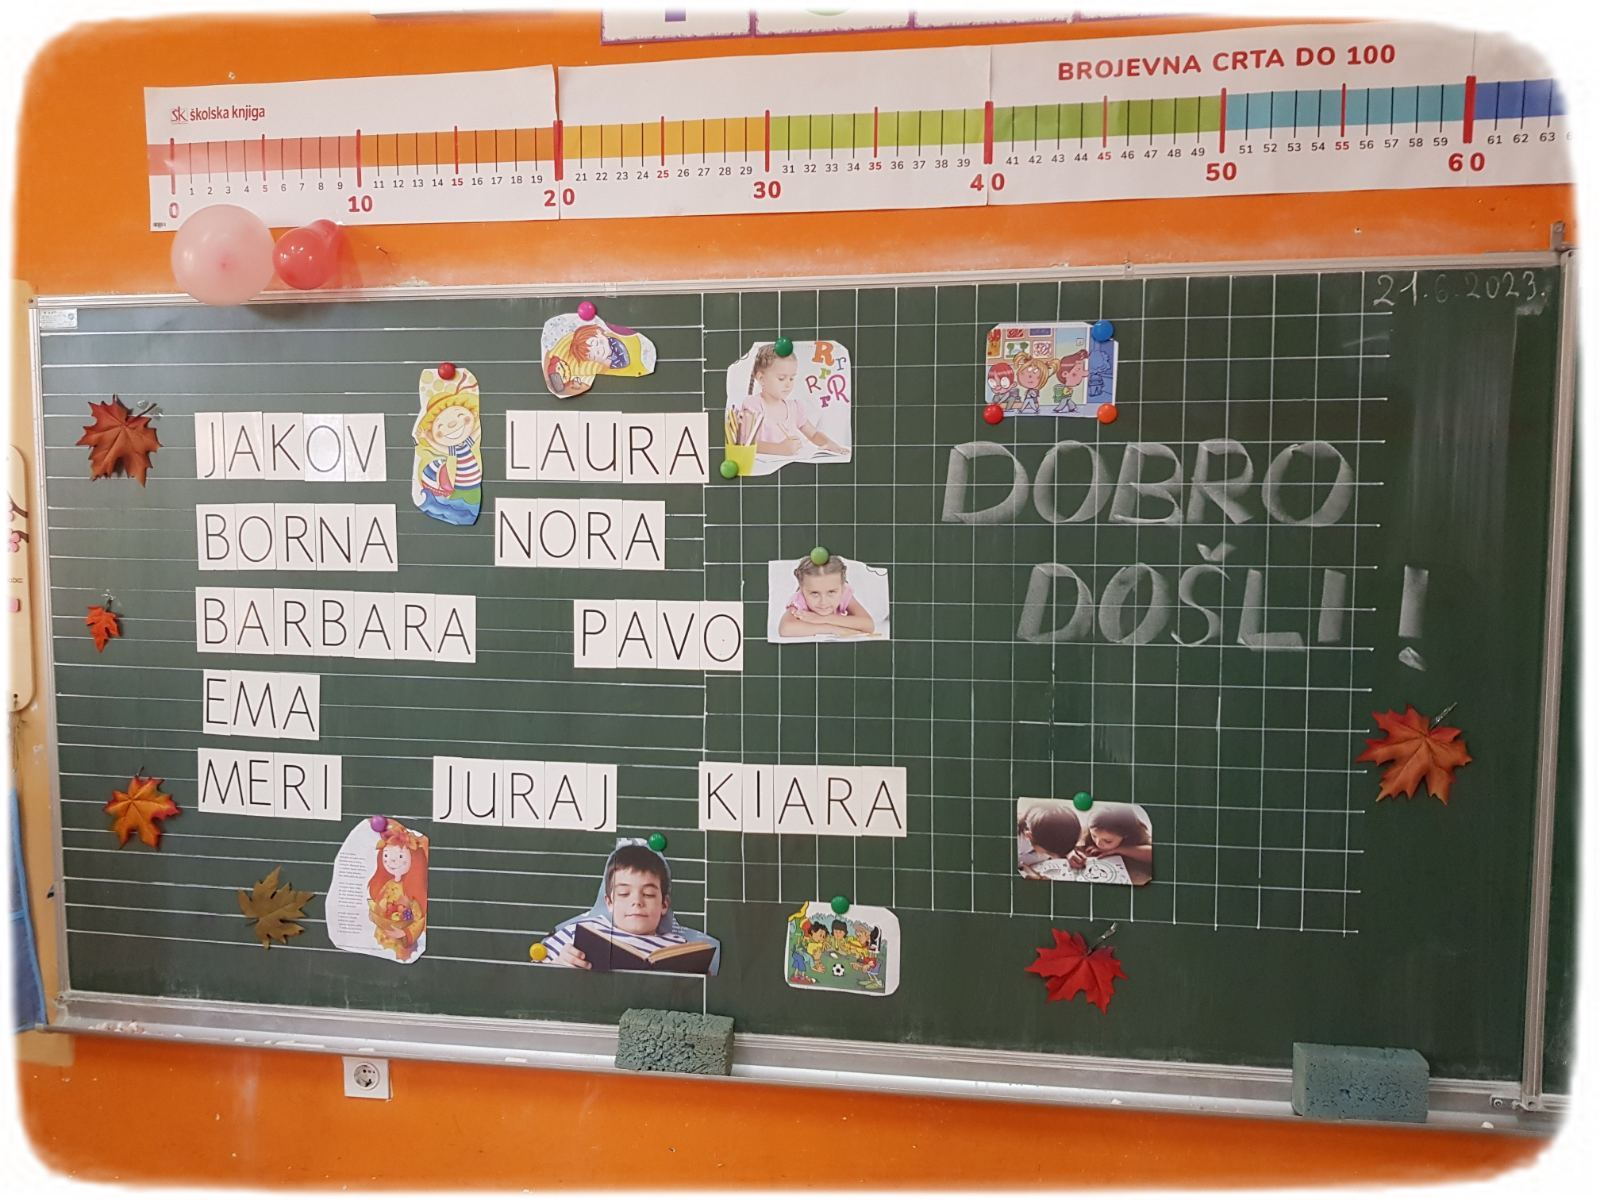 BROJEVNA CRTA DO 100
školska knjiga
1 2 3 4 5 6 7 8 9 11 12 13 14 15 16 17 18 19 21 22 23 24 25 26 27 28 29 31 32 33 34 35 36 37 38 39 41 42 43 44 45 46 47 48 49 51 52 53 54 55 56 57 58 59 61 62 63
0 10 20 30 40 50 60
21.6.2023.
R r
r
R R
r
JAKOV LAURA
BORNA NORA
BARBARA PAVO
EMA
MERI JURAJ KIARA
DOBRO
DOŠLI!